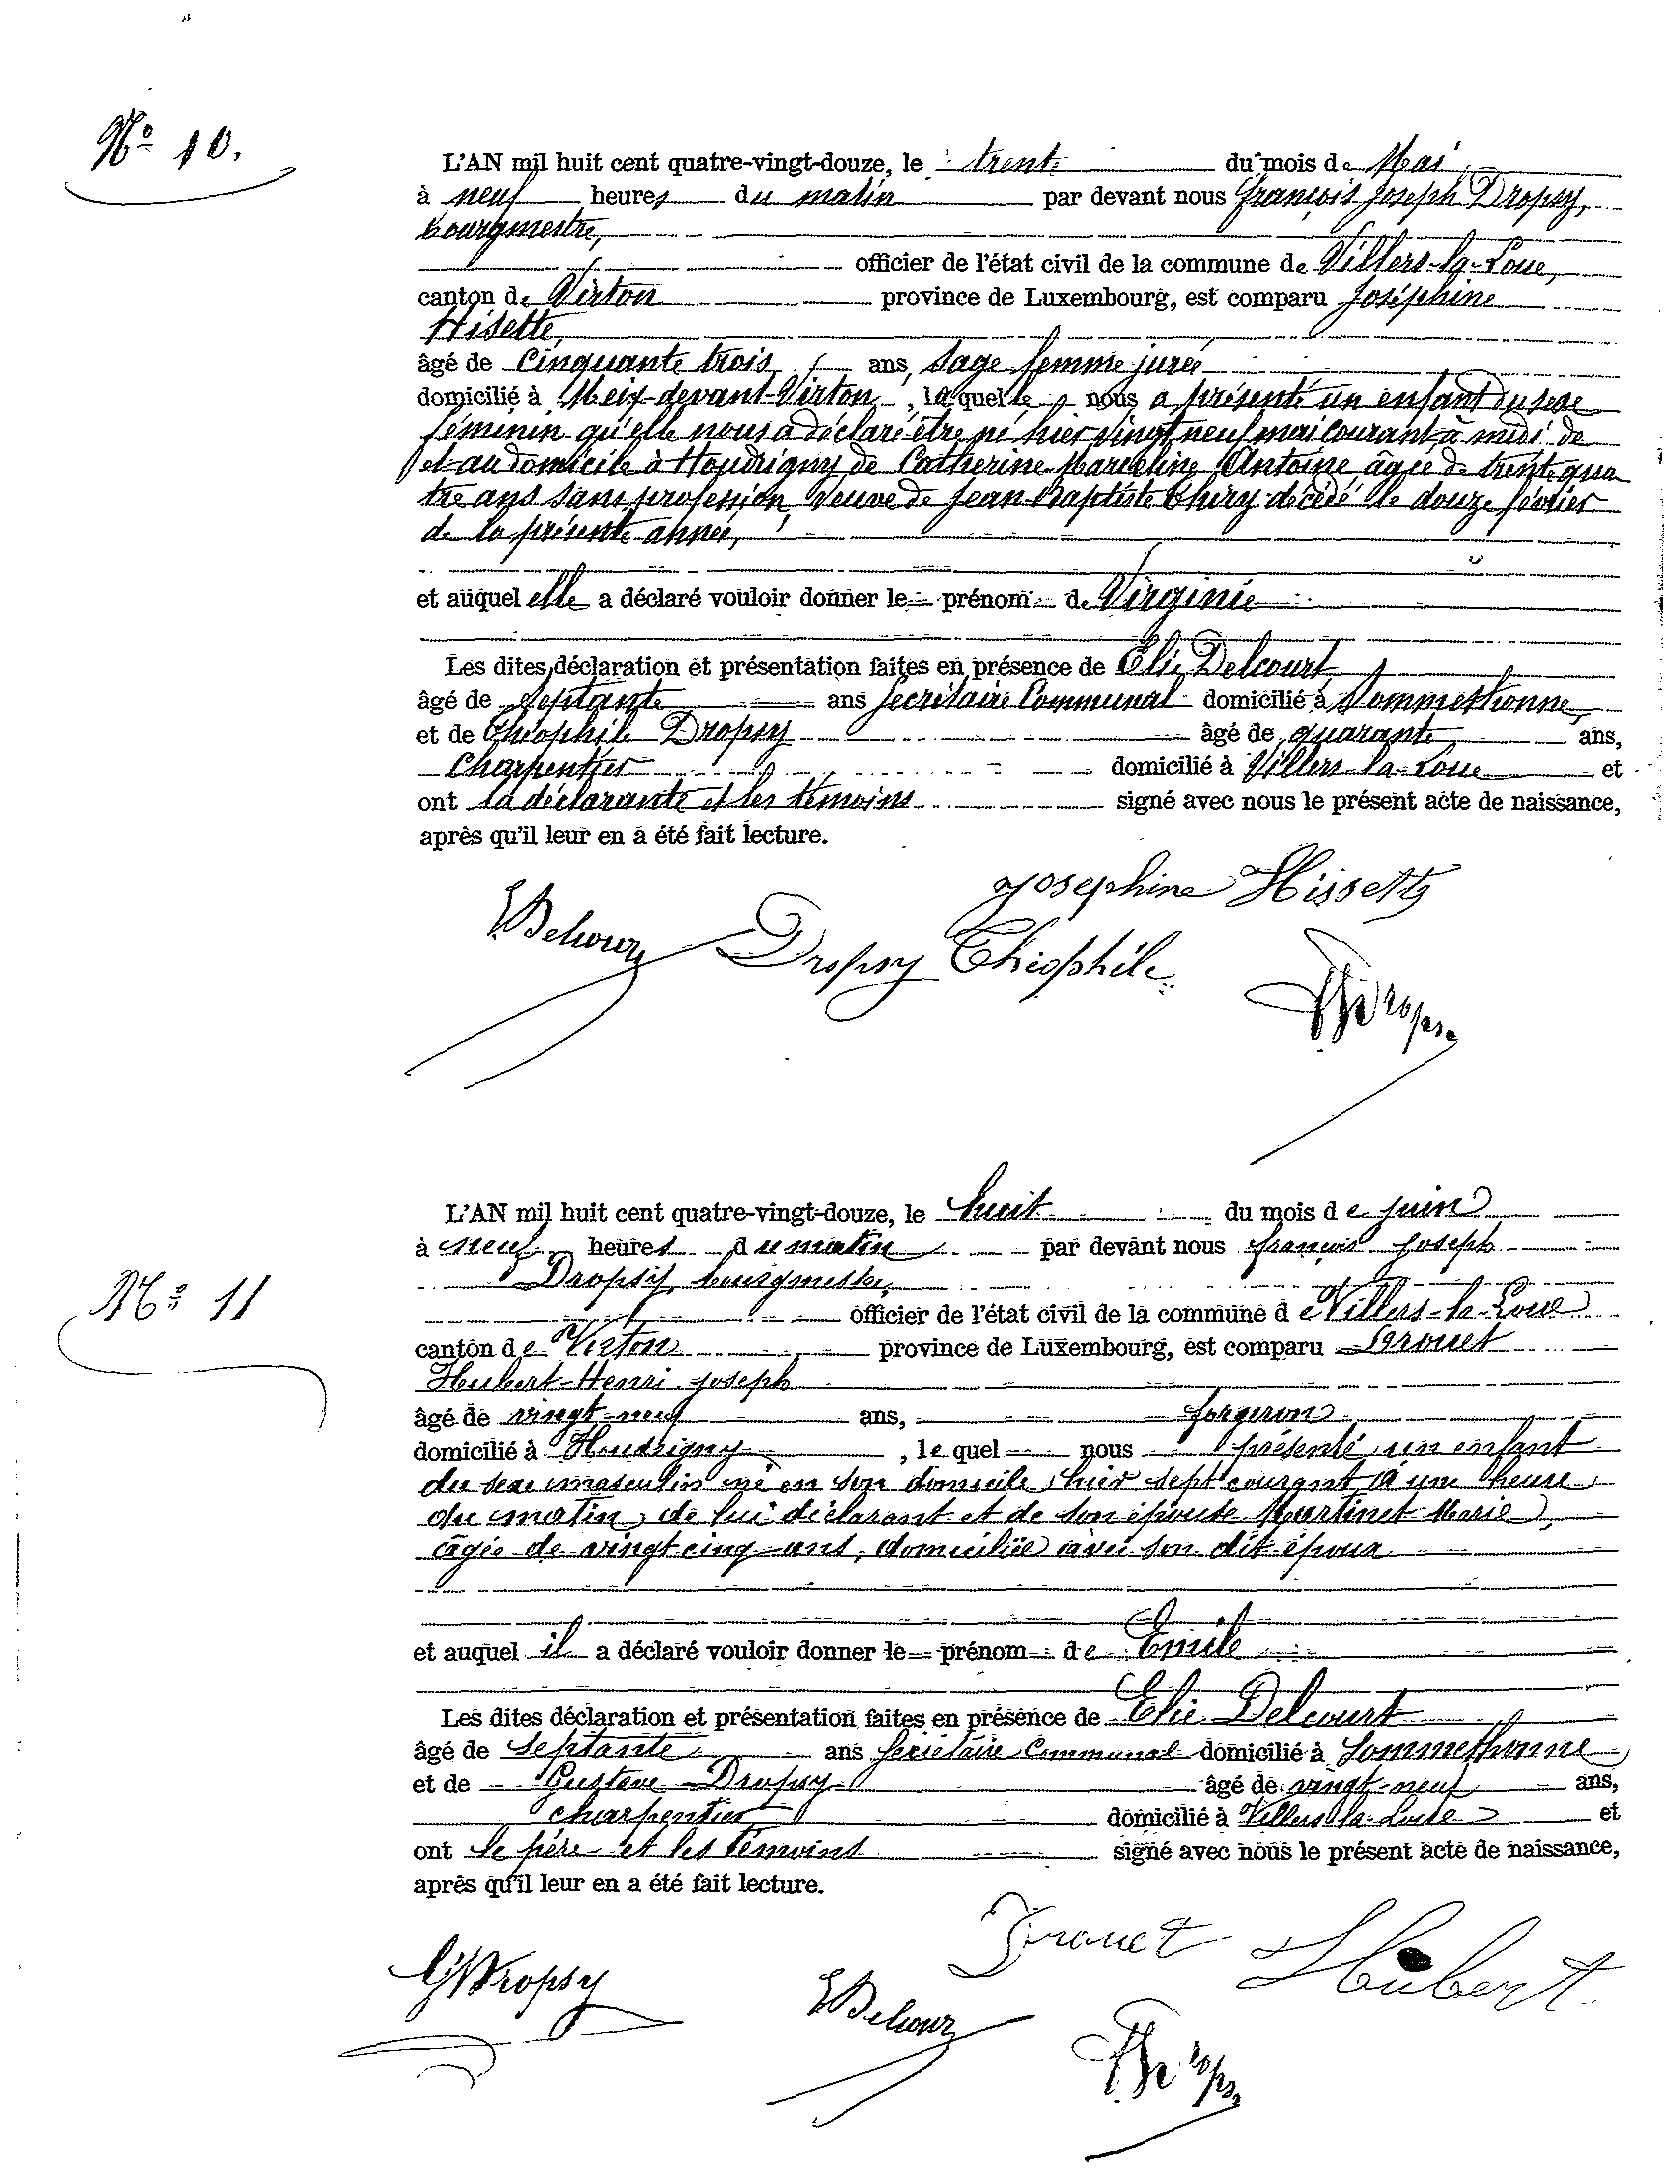 N° 10.
L'AN mil huit cent quatre-vingt-douze, le trente du mois de Mai
à neuf heures du matin par devant nous François Joseph Dropsy,
bourgmestre,
officier de l'état civil de la commune de Villers-la-Loue,
canton de Virton province de Luxembourg, est comparu Joséphine
Hisette,
âgé de cinquante trois ans, sage femme jurée
domicilié à Meix-devant-Virton, laquelle nous a présenté un enfant du sexe
féminin qu'elle nous a déclaré être né hier vingt neuf mai courant à midi de
et au domicile à Houdrigny de Catherine Marceline Antoine âgée de trente qua
tre ans sans profession, veuve de Jean-Baptiste Thiry décédé le douze février
de la présente année,
et auquel elle a déclaré vouloir donner le prénom de Virginie
Les dites déclaration et présentation faites en présence de Elie Delcourt
âgé de septante ans Secrétaire Communal domicilié à Sommethonne,
et de Théophile Dropsy âgé de quarante ans,
Charpentier domicilié à Villers-la-Loue et
ont la déclarante et les témoins signé avec nous le présent acte de naissance,
après qu'il leur en a été fait lecture.
Josephine Hissette
EDelcourt Dropsy Théophile
FJDropsy
L'AN mil huit cent quatre-vingt-douze, le huit du mois de juin
à neuf heures du matin par devant nous françois joseph
N° 11
Dropsy, bourgmestre,
officier de l'état civil de la commune de Villers-la-Loue
canton de Virton province de Luxembourg, est comparu Brouet
Hubert-Henri joseph
âgé de vingt-neuf ans, forgeron
domicilié à Houdrigny, lequel nous présenté un enfant
du sexe masculin né en son domicile hier sept courant à une heure
du matin, de lui déclarant et de son épouse Martinet Marie,
âgée de vingt cinq ans, domiciliée avec son dit époux
et auquel il a déclaré vouloir donner le prénom de Emile
Les dites déclaration et présentation faites en présence de Elie Delcourt
âgé de septante ans Secrétaire Communal domicilié à Sommethonne
et de Gustave Dropsy âgé de vingt-neuf ans,
charpentier domicilié à Villers-la-Loue et
ont le père et les témoins signé avec nous le présent acte de naissance,
après qu'il leur en a été fait lecture.
Brouet Hubert
GDropsy EDelcourt
FJDropsy